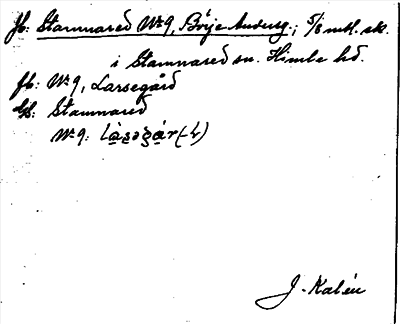 jb: Stamnared Nr 9, Börje Andersg.; 5/8 mtl. sk.
i Stamnared sn. Himle hd.
fb: Nr 9, Larsegård
Stamnared
Nr 9: làsəgár (-h)
J. Kalén